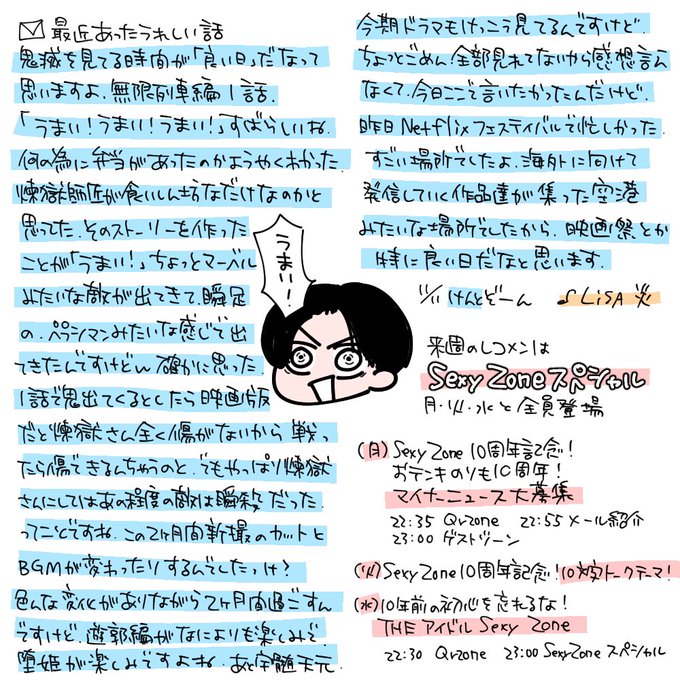 最近あったうれしい話
鬼滅を見てる時間が「良い日」だなって
思いますよ.無限列車編1話.
「うまい!うまい!うまい!」すばらしいね.
何の為に弁当があったのかようやくわかった.
煉獄師匠が食いしん坊なだけなのかと
思ってた.そのストーリーを作った
ことが「うまい!」ちょっとマーベル
みたいな敵が出てきて.瞬足
の.ペラシマンみたいな感じで出
てきたんですけどw 確かに思った.
1話で鬼出てくるとしたら映画版
だと煉獄さん全く傷がないから 戦っ
たら傷できるんちゃうのと.でもやっぱり煉獄
さんにしてはあの程度の敵は瞬殺だった.
ってことですね.この2ヶ月間新撮のカットと
BGMが変わったりするんでしたっけ?
色んな変化がありながら2ヶ月間過ごすん
ですけど.遊郭編がなによりも楽しみで.
堕姫が楽しみですよね.あと宇髄天元.
うまい!
今期ドラマもけっこう見てるんですけど.
ちょっとごめん.全部見れてないから感想言え
なくて.今日ここで言いたかったんだけど.
昨日Netflixフェスティバルで忙しかった.
すごい場所でしたよ.海外に向けて
発信していく作品達が集った空港
みたいな場所でしたから.映画祭とか
特に良い日だなと思います.
11/11 けんどーん ♪LiSA 炎
来週のレコメンは
Sexy Zone スペシャル
月・火・水と全員登場
(月) Sexy Zone 10周年記念!
おテンキのりも10周年!
マイナーニュース大募集
22:35 Qrzone 22:55 メール紹介
23:00 ゲストゾーン
(火) Sexy Zone 10周年記念!10次トークテーマ!
(水) 10年前の初心を忘れるな!
THE アイドル Sexy Zone
22:30 Qrzone 23:00 Sexy Zone スペシャル